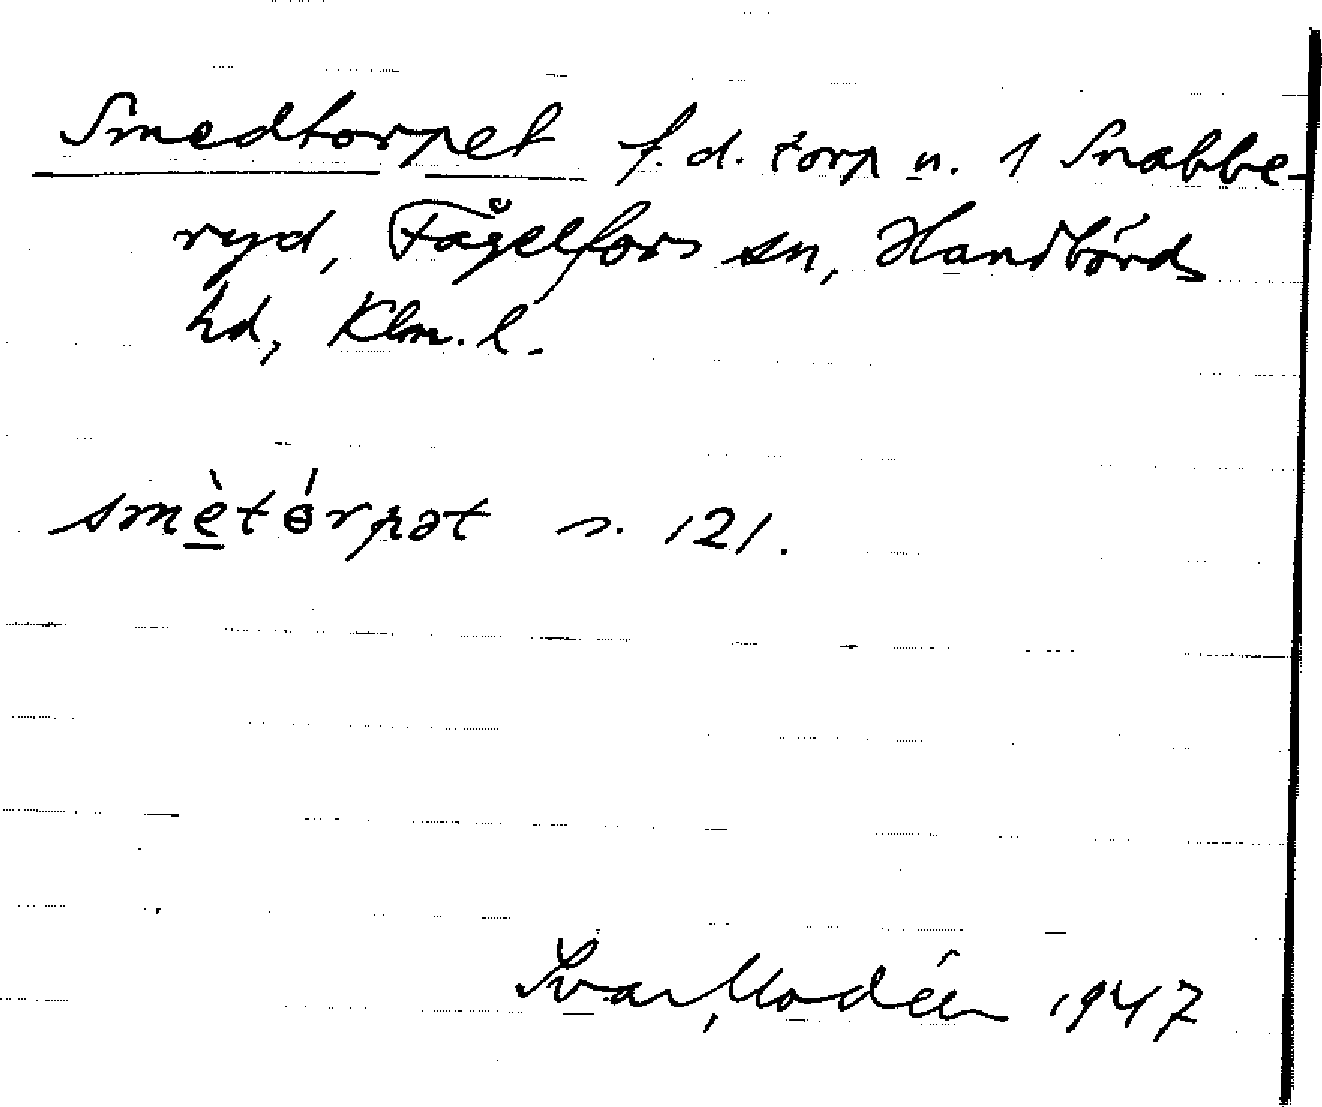 Smedtorpet f.d. torp u. 1 Snabbe-
ryd, Fågelfors sn, Handbörds
hd, Klm. l.
smètɵ́rpət s. 121.
Ivar Modéer 1947